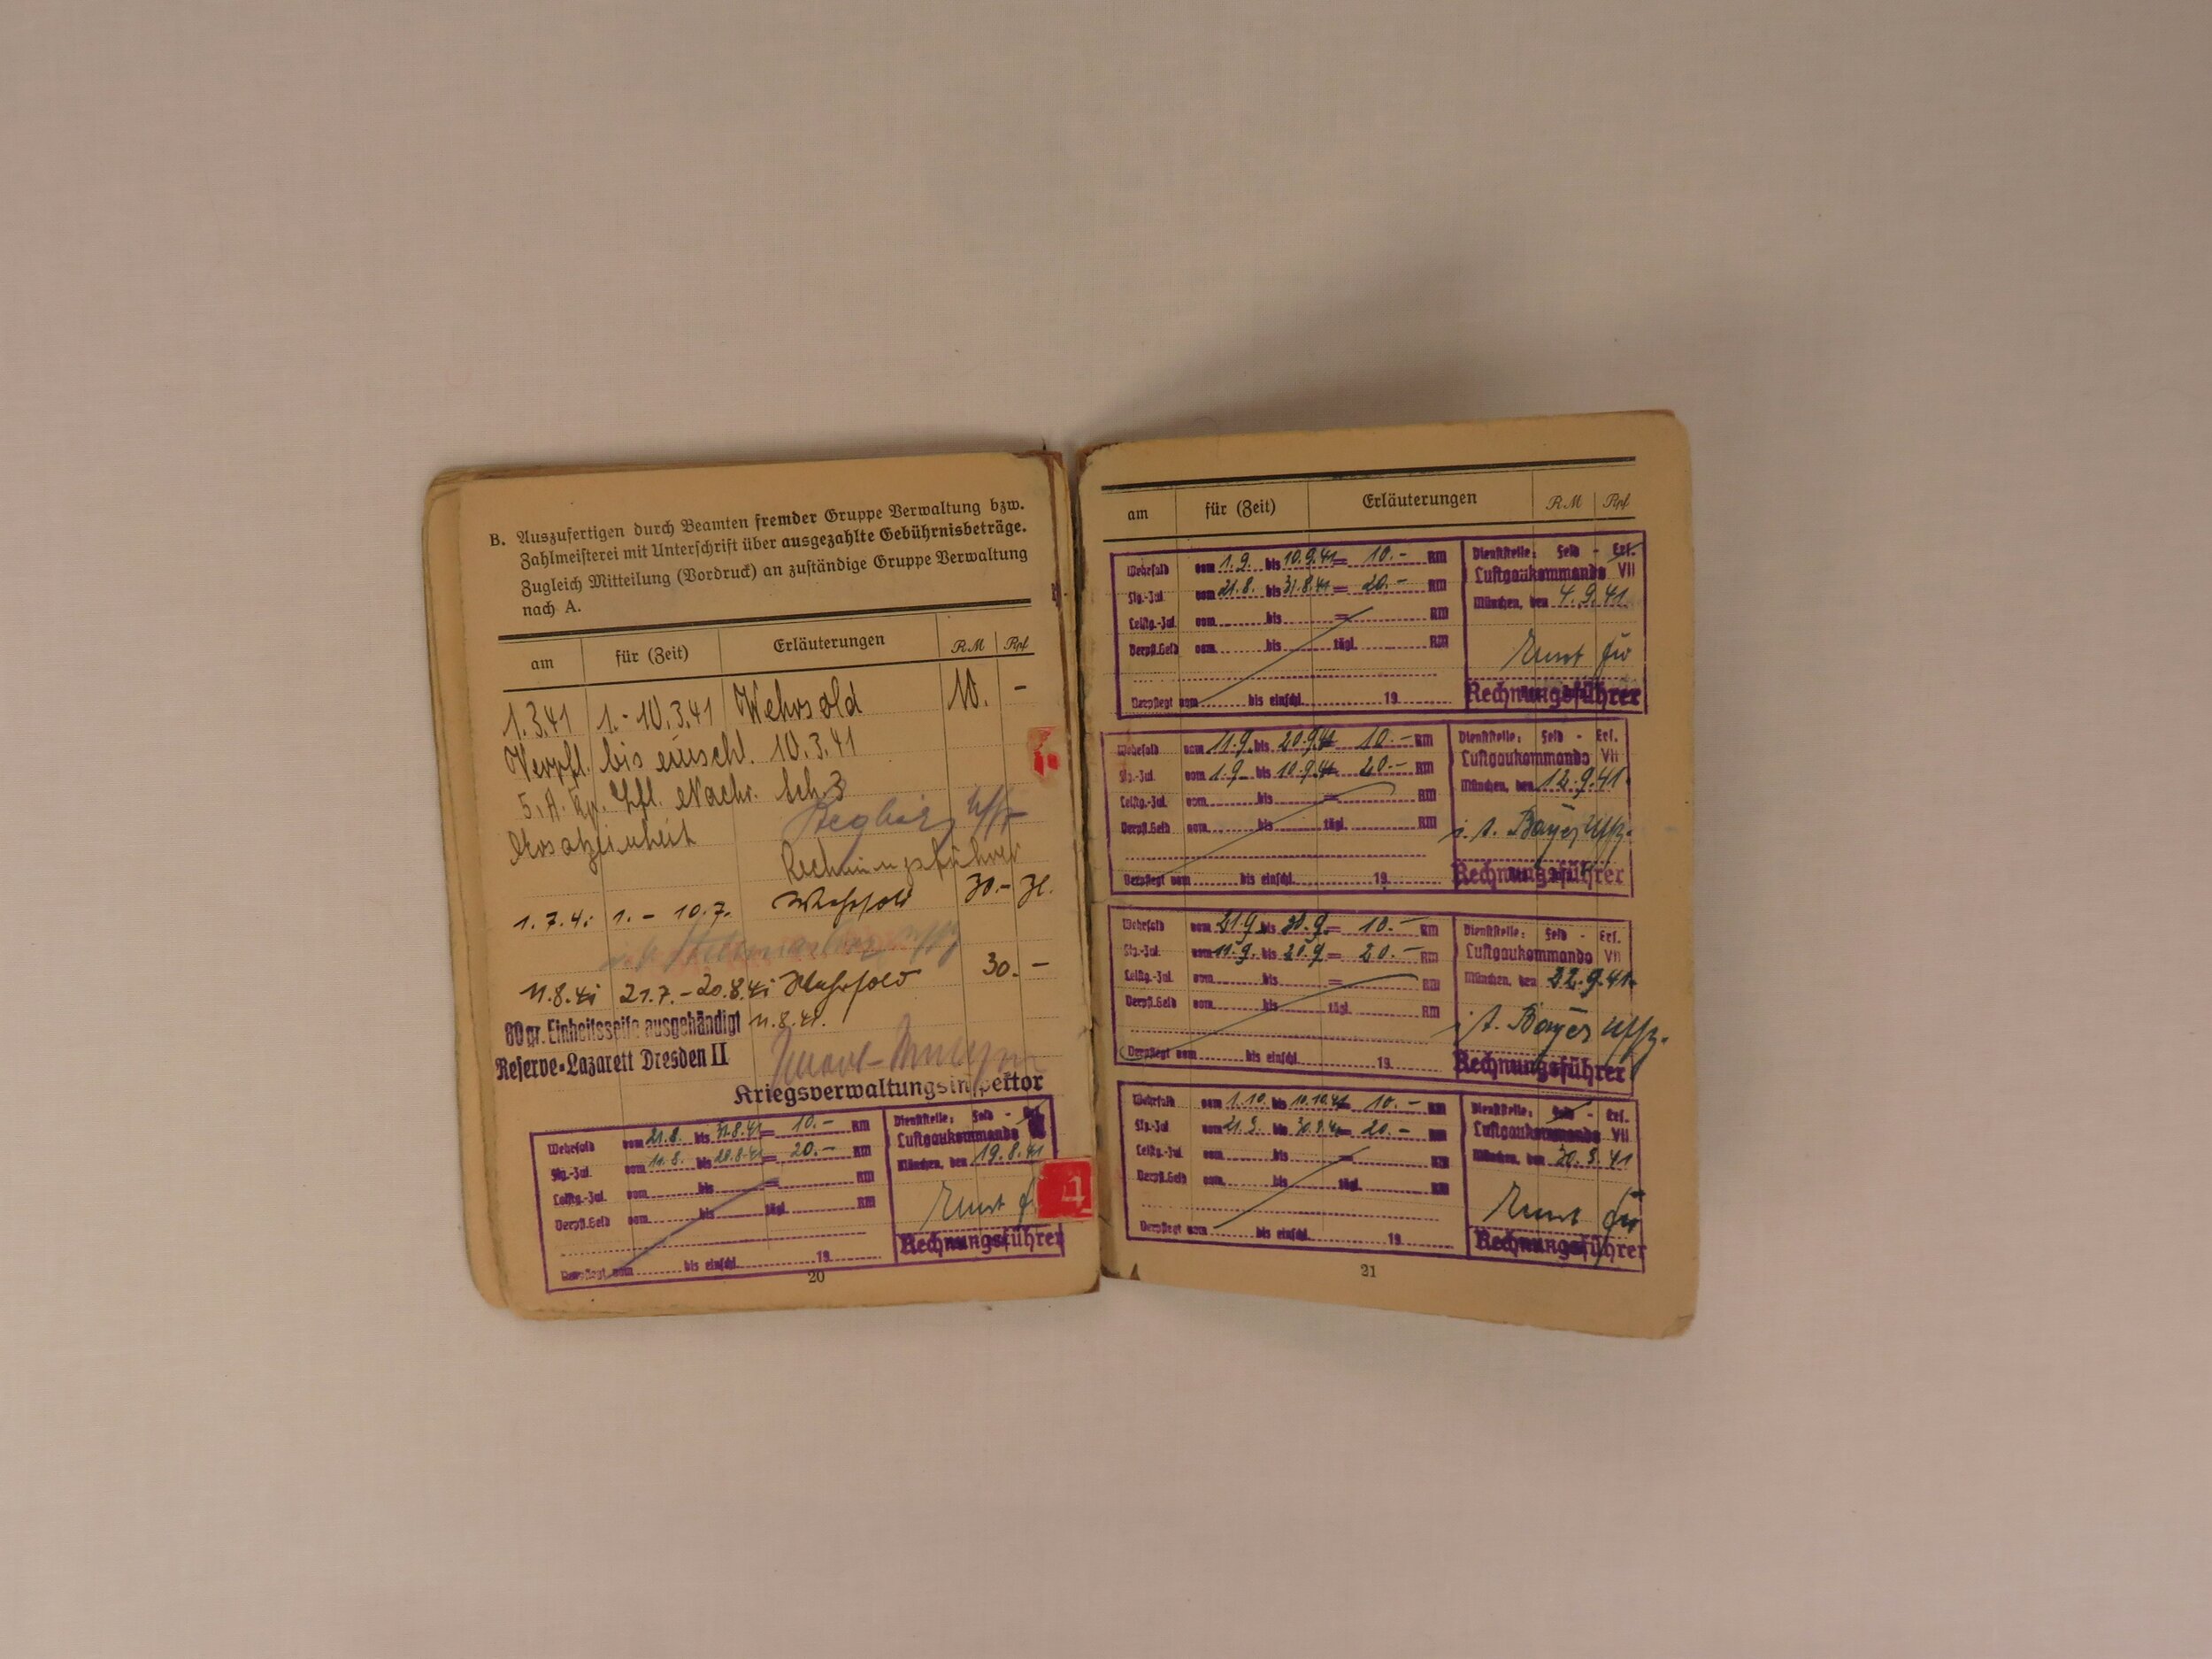 B. Auszufertigen durch Beamten fremder Gruppe Verwaltung bzw.
Zahlmeisterei mit Unterschrift über ausgezahlte Gebührnisbeträge.
Zugleich Mitteilung (Vordruck) an zuständige Gruppe Verwaltung
nach A.
am für (Zeit) Erläuterungen RM Rpf
1.3.41 1.-10.3.41 Wehrsold 10. -
Verpfl. bis einschl. 10.3.41
Nachr.
Rechnungsführer
1.7.41 1. - 10.7. Wehrsold
11.8.41 21.7. - 20.8.41 Wehrsold 30. -
80 gr. Einheitsseife ausgehändigt 11.8.41.
Reserve-Lazarett Dresden II
Kriegsverwaltungsinspektor
Wehrsold vom 21.8. bis 31.8.41 = 10.- RM
vom 11.8. bis 20.8.41 = 20.- RM
Leistg.-Zul. vom bis = RM
Verpfl.Geld vom bis tägl. RM
Verpflegt vom bis einschl. 19
Dienststelle: Feld -
Luftgaukommando
München, den 19.8.41
Rechnungsführer
4
20
am für (Zeit) Erläuterungen RM Rpf
Wehrsold vom 1.9. bis 10.9.41 = 10.- RM
vom 21.8. bis 31.8.41 = 20.- RM
Leistg.-Zul. vom bis = RM
Verpfl.Geld vom bis tägl. RM
Verpflegt vom bis einschl. 19
Dienststelle: Feld - Ers.
Luftgaukommando VII
München, den 4.9.41
Rechnungsführer
Wehrsold vom 11.9. bis 20.9.41 = 10.- RM
vom 1.9. bis 10.9.41 = 20.- RM
Leistg.-Zul. vom bis = RM
Verpfl.Geld vom bis tägl. RM
Verpflegt vom bis einschl. 19
Dienststelle: Feld - Ers.
Luftgaukommando VII
München, den 12.9.41.
Bayer Uffz.
Rechnungsführer
Wehrsold vom 21.9. bis 30.9. = 10.- RM
vom 11.9. bis 20.9. = 20.- RM
Leistg.-Zul. vom bis = RM
Verpfl.Geld vom bis tägl. RM
Verpflegt vom bis einschl. 19
Dienststelle: Feld - Ers.
Luftgaukommando VII
München, den 22.9.41.
Bayer Uffz.
Rechnungsführer
Wehrsold vom 1.10. bis 10.10.41 = 10.- RM
vom 21.9. bis 30.9.41 = 20.- RM
Leistg.-Zul. vom bis = RM
Verpfl.Geld vom bis tägl. RM
Verpflegt vom bis einschl. 19
Dienststelle: Feld - Ers.
Luftgaukommando VII
München, den 30.9.41
Rechnungsführer
21